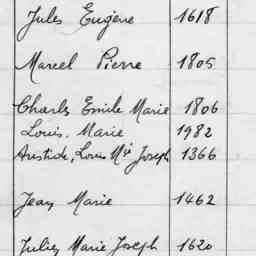 Jules Eugène 1618
Marcel Pierre 1805
Charles Emile Marie 1806
Louis. Marie 1982
Aristide, Louis Mie Joseph 1366
Jean Marie 1462
Jules Marie Joseph 1620